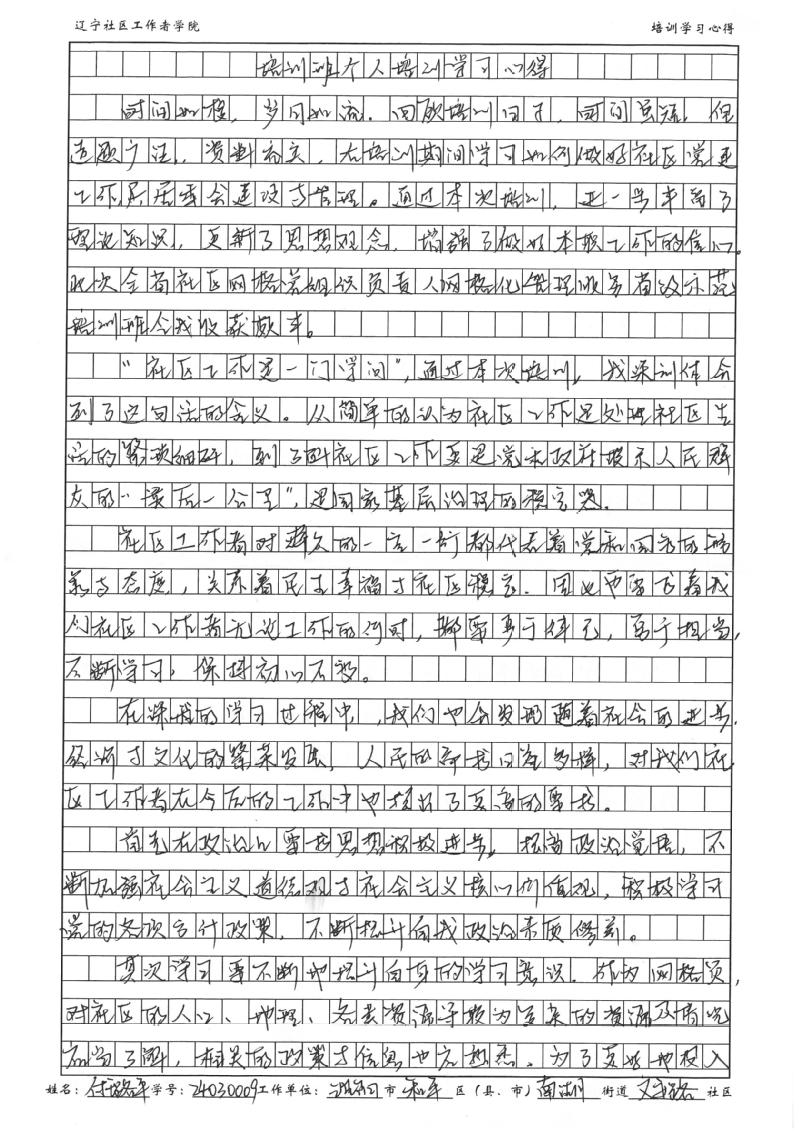 辽宁社区工作者学院 培训学习心得
培训班个人培训学习心得
时间如梭，岁月如流。回顾培训日子，时间虽短，但
选题广泛，资料充实，在培训期间学习如何做好社区党建
工作及居委会建设与管理。通过本次培训，进一步丰富了
理论知识，更新了思想观念，增强了做好本职工作的信心。
此次全省社区网格党组织负责人网格化管理服务省级示范
培训班令我收获颇丰。
“社区工作是一门学问”，通过本次培训，我深刻体会
到了这句话的含义。从简单的认为社区工作是处理社区生
活的繁琐细碎，到了解社区工作更是党和政府服务人民群
众的“最后一公里”，是国家基层治理的稳定器。
社区工作者对群众的一言一行都代表着党和国家的
与态度，关系着民生幸福与社区稳定。因此也要我
们社区工作者无论工作的何时，都要勇于律己，勇于担当，
不断学习，保持初心不变。
在深入的学习过程中，我们也会发现随着社会的进步，
经济与文化的繁荣发展，人民的需求日益多样，对我们社
区工作者在今后的工作中也提出了更高的要求。
首先在政治上要求思想积极进步，提高政治觉悟，不
断加强社会主义道德观与社会主义核心价值观，积极学习
党的各项方针政策，不断提升自我政治素质修养。
其次学习要不断地提升自身的学习意识。作为网格员，
对社区的人口、地理、各类资源等较为复杂的资源及情况
应当了解，相关的政策与信息也应熟悉。为了更好地投入
姓名： 学号：24030009 工作单位：沈阳市 和平 区（县、市） 南湖 街道 文安路 社区